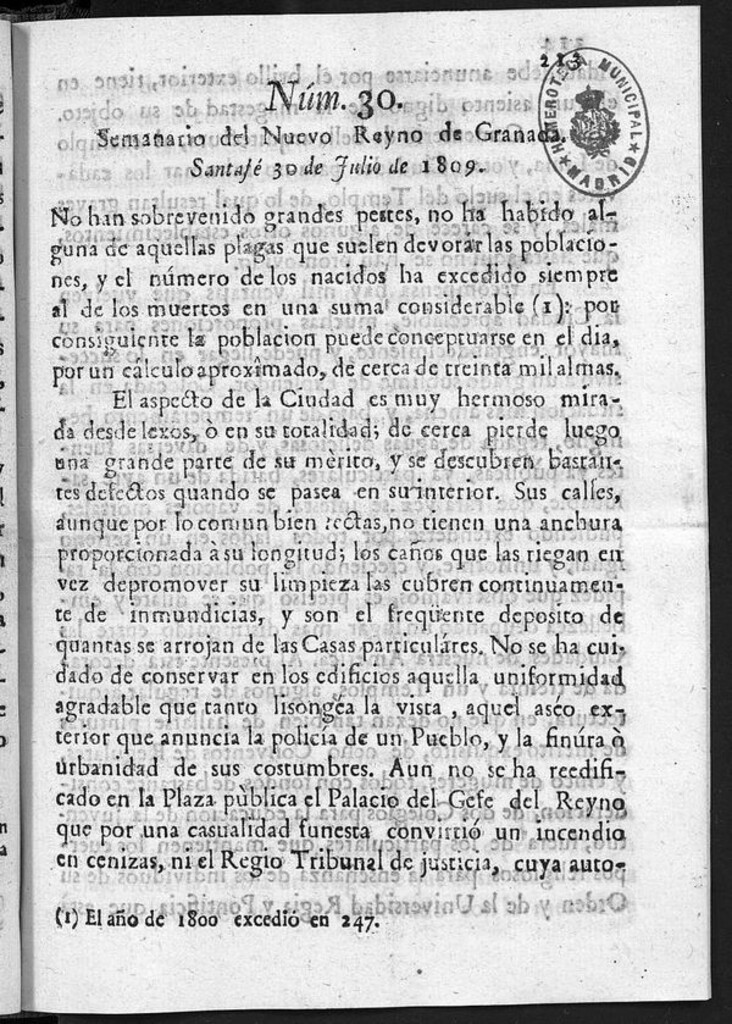 213
HEMEROTECA MUNICIPAL
★ MADRID ★
Núm. 30.
Semanario del Nuevo Reyno de Granada.
Santafé 30 de Julio de 1809.
No han sobrevenido grandes pestes, no ha habido al-
guna de aquellas plagas que suelen devorar las poblacio-
nes, y el número de los nacidos ha excedido siempre
al de los muertos en una suma considerable (1): por
consiguiente la poblacion puede conceptuarse en el dia,
por un cálculo aproxîmado, de cerca de treinta mil almas.
El aspecto de la Ciudad es muy hermoso mira-
da desde lexos, ò en su totalidad; de cerca pierde luego
una grande parte de su mèrito, y se descubren bastan-
tes defectos quando se pasea en su interior. Sus calles,
aunque por lo comun bien rectas, no tienen una anchura
proporcionada à su longitud; los caños que las riegan en
vez de promover su limpieza las cubren continuamen-
te de inmundicias, y son el freqüente deposito de
quantas se arrojan de las Casas particuláres. No se ha cui-
dado de conservar en los edificios aquella uniformidad
agradable que tanto lisongéa la vista, aquel aséo ex-
terior que anuncia la policía de un Pueblo, y la finúra ò
urbanidad de sus costumbres. Aun no se ha reedifi-
cado en la Plaza pùblica el Palacio del Gefe del Reyno
que por una casualidad funesta convirtió un incendio
en cenizas, ni el Regio Tribunal de justicia, cuya auto-
(1) El año de 1800 excedió en 247.